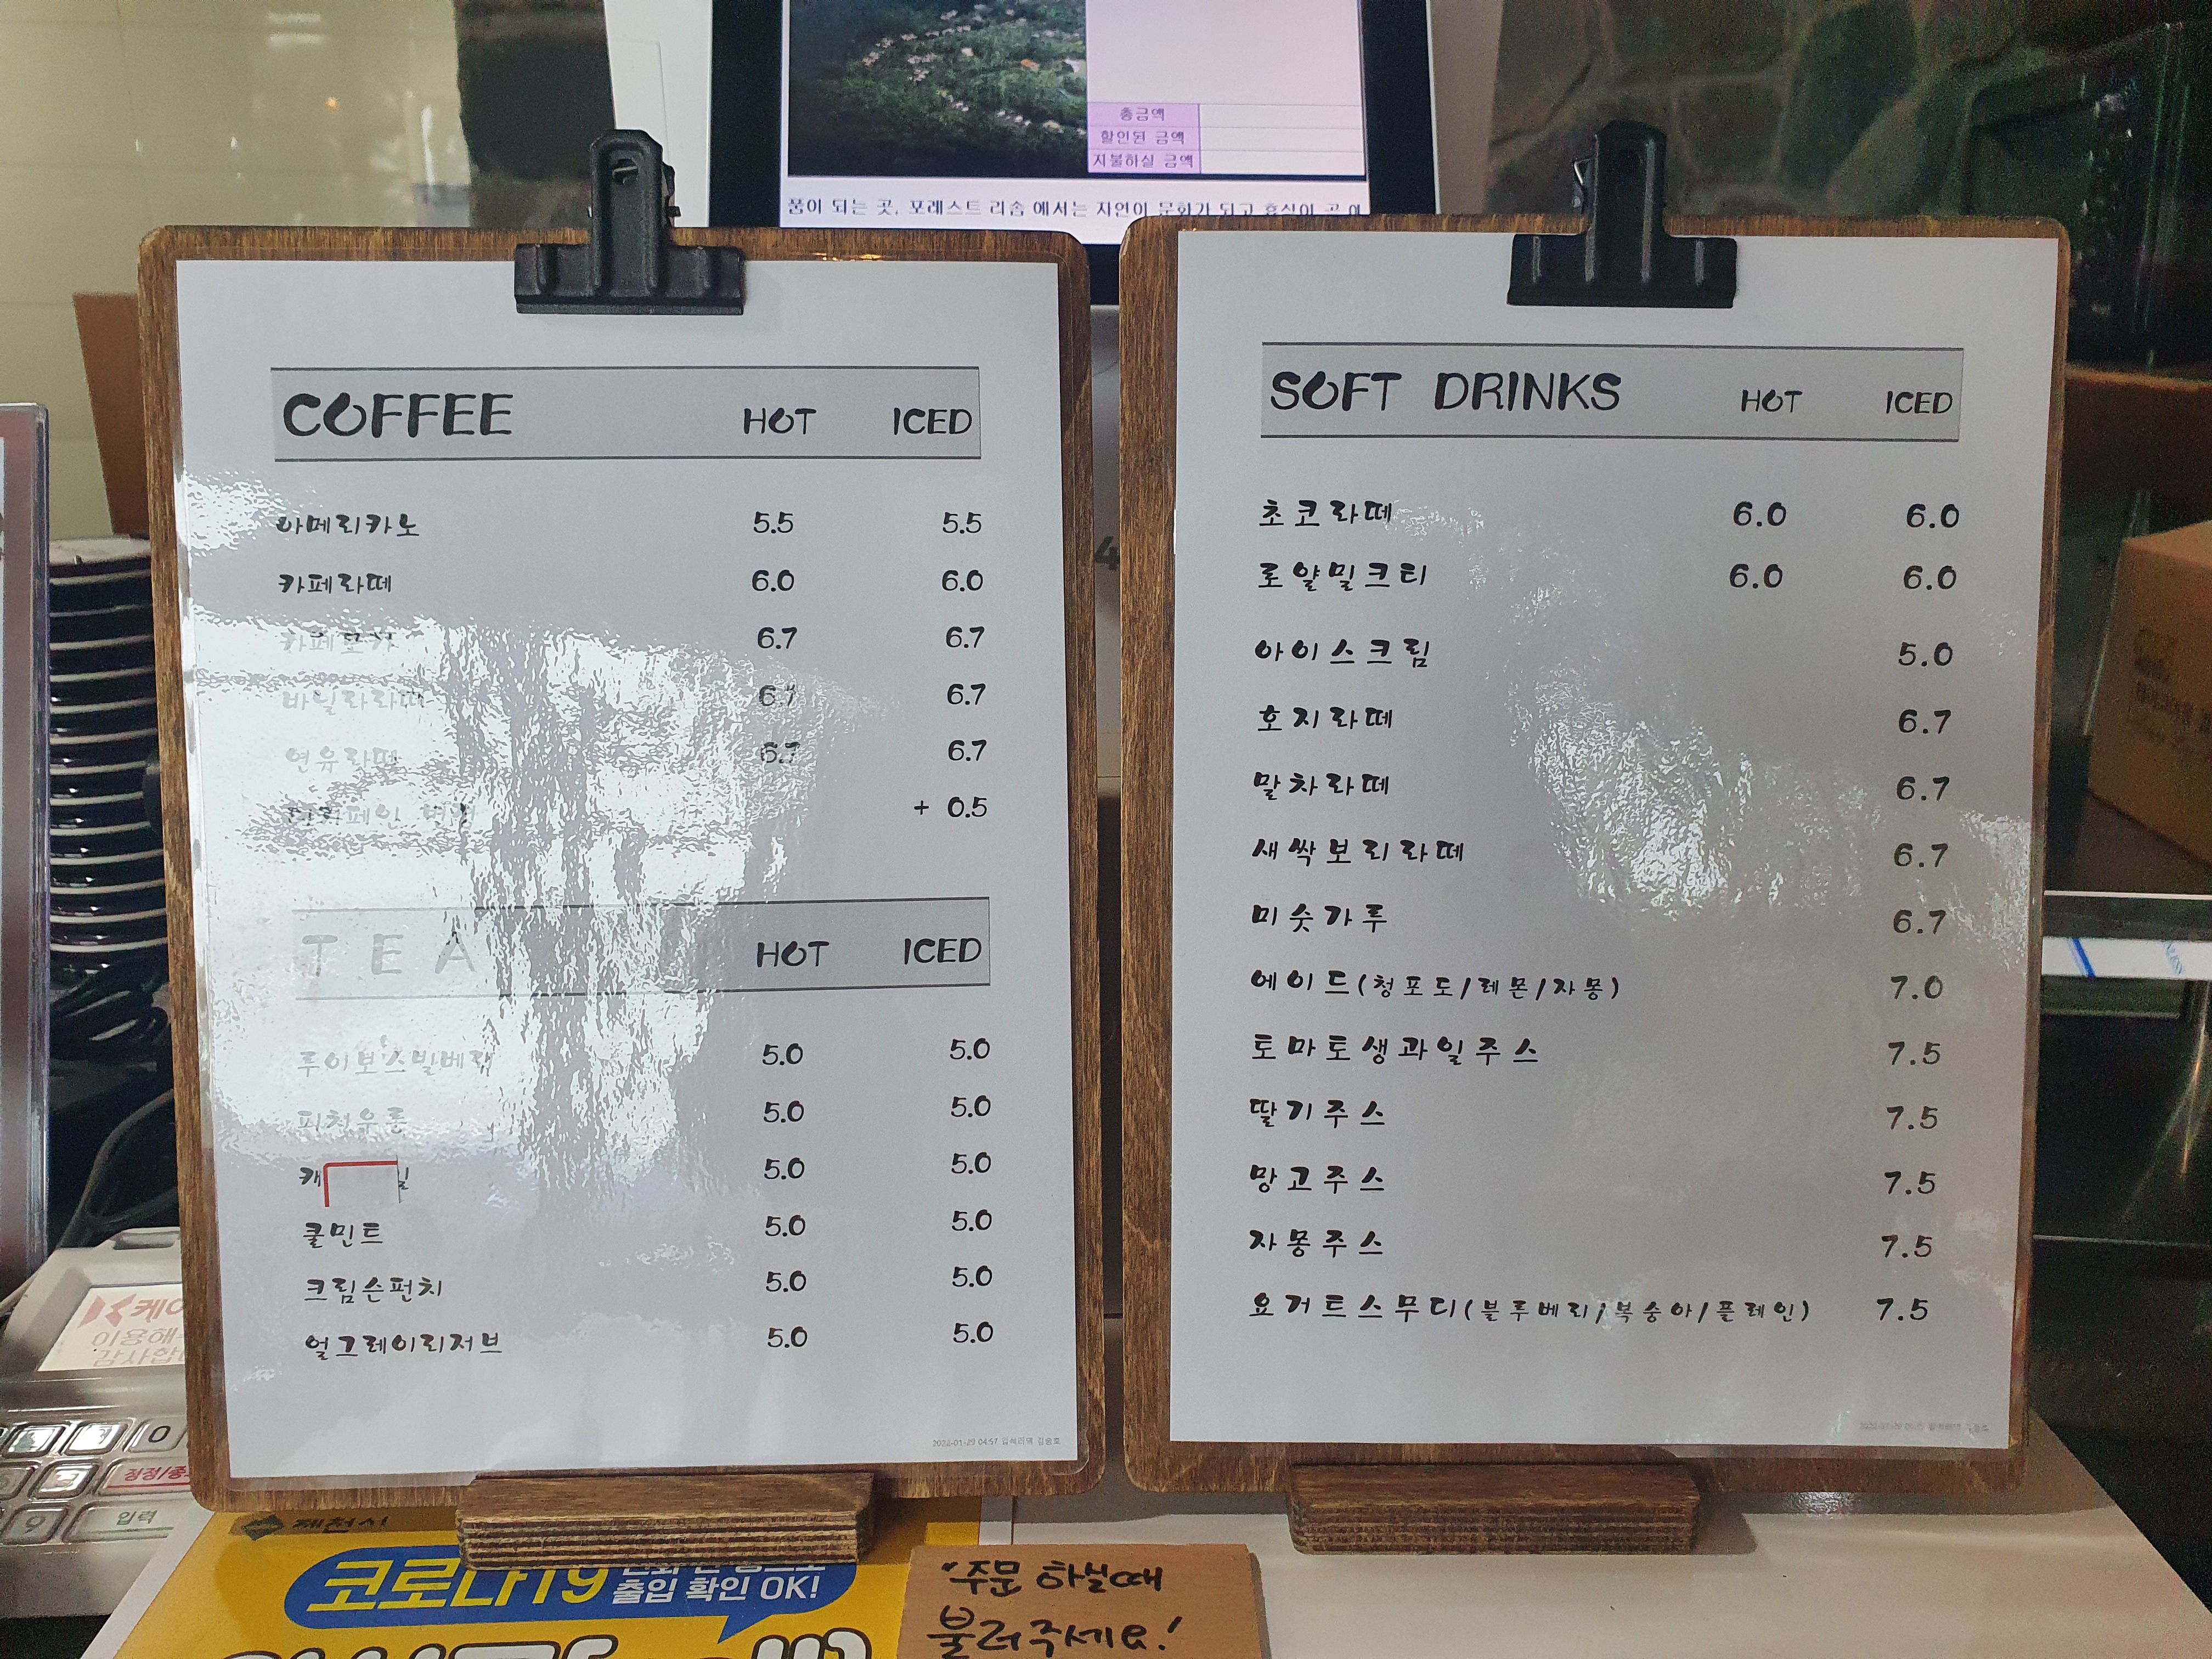 총금액
할인된 금액
지불하실 금액
품이 되는 곳, 포레스트 리솜 에서는 자연이 문화가 되고 휴식이
COFFEE HOT ICED
아메리카노 5.5 5.5
카페라떼 6.0 6.0
카페모카 6.7 6.7
바닐라라떼 6.7 6.7
연유라떼 6.7 6.7
+ 0.5
TEA HOT ICED
루이보스발베리 5.0 5.0
피치우롱 5.0 5.0
5.0 5.0
쿨민트 5.0 5.0
크림슨펀치 5.0 5.0
얼그레이리저브 5.0 5.0
SOFT DRINKS HOT ICED
초코라떼 6.0 6.0
로얄밀크티 6.0 6.0
아이스크림 5.0
호지라떼 6.7
말차라떼 6.7
새싹보리라떼 6.7
미숫가루 6.7
에이드(청포도/레몬/자몽) 7.0
토마토생과일주스 7.5
딸기주스 7.5
망고주스 7.5
자몽주스 7.5
요거트스무디(블루베리/복숭아/플레인) 7.5
입력
제천시
코로나19
출입 확인 OK!
주문 하실때
불러주세요!